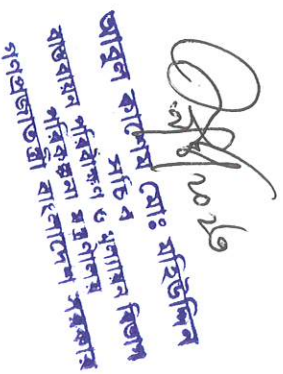 আবুল কালেম মোঃ মহিউদ্দিন
সচিব
বাস্তবায়ন পরিবীক্ষণ ও মূল্যায়ন বিভাগ
পরিকল্পনা মন্ত্রণালয়
গণপ্রজাতন্ত্রী বাংলাদেশ সরকার